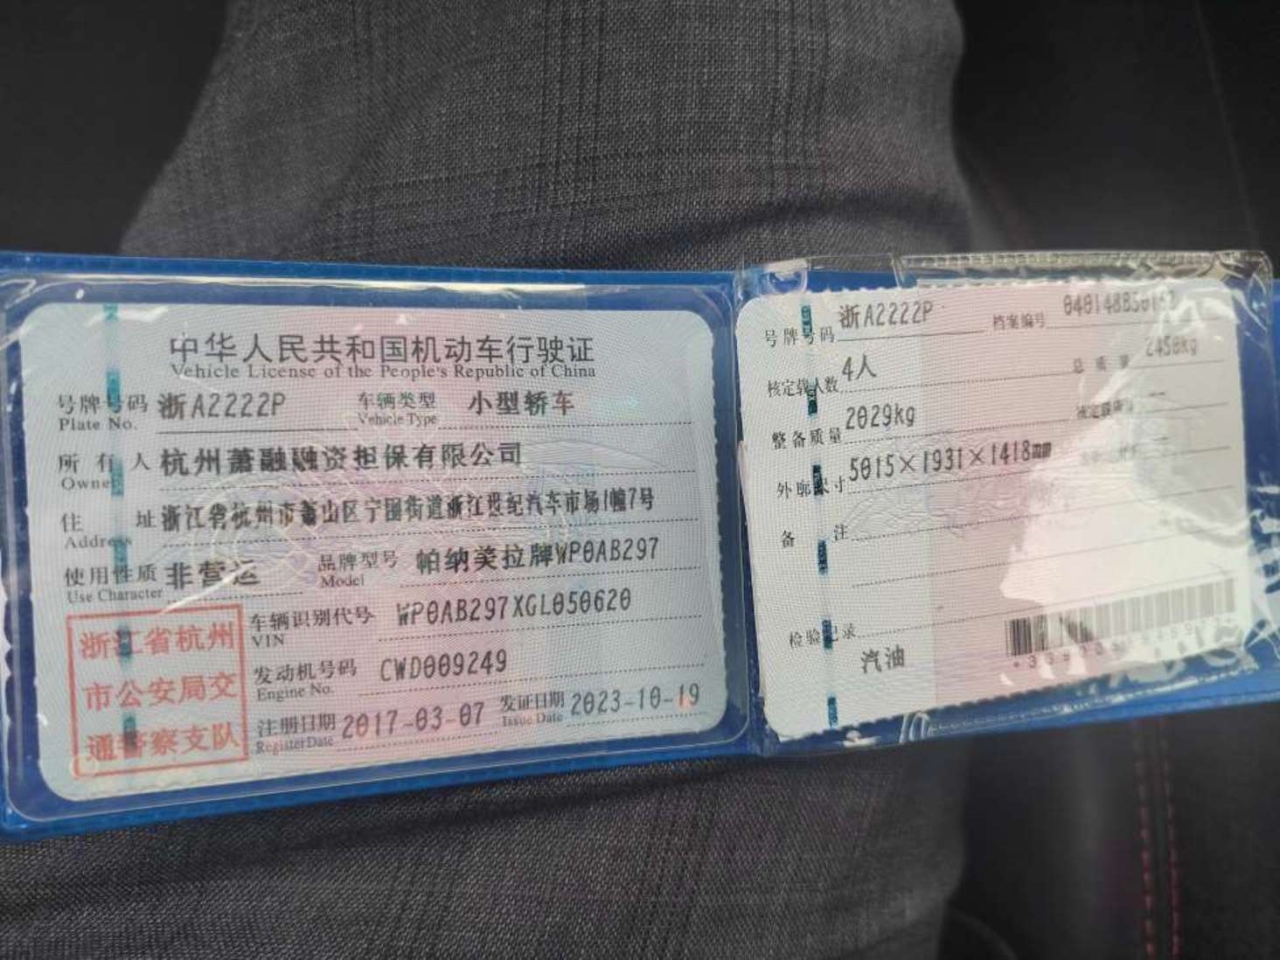 中华人民共和国机动车行驶证
Vehicle License of the People's Republic of China
号牌号码 浙A2222P 车辆类型 小型轿车
Plate No. Vehicle Type
所有人 杭州萧融融资担保有限公司
Owner
住址 浙江省杭州市萧山区宁围街道浙江世纪汽车市场1幢7号
Address
使用性质 非营运 品牌型号 帕纳美拉牌WP0AB297
Use Character Model
浙江省杭州
市公安局交
通警察支队
车辆识别代号 WP0AB297XGL050620
VIN
发动机号码 CWD009249
Engine No.
注册日期 2017-03-07 发证日期 2023-10-19
Register Date Issue Date
号牌号码 浙A2222P 档案编号
核定载人数 4人 总质量 2450kg
整备质量 2029kg
外廓尺寸 5015×1931×1418mm
备注
检验记录
汽油